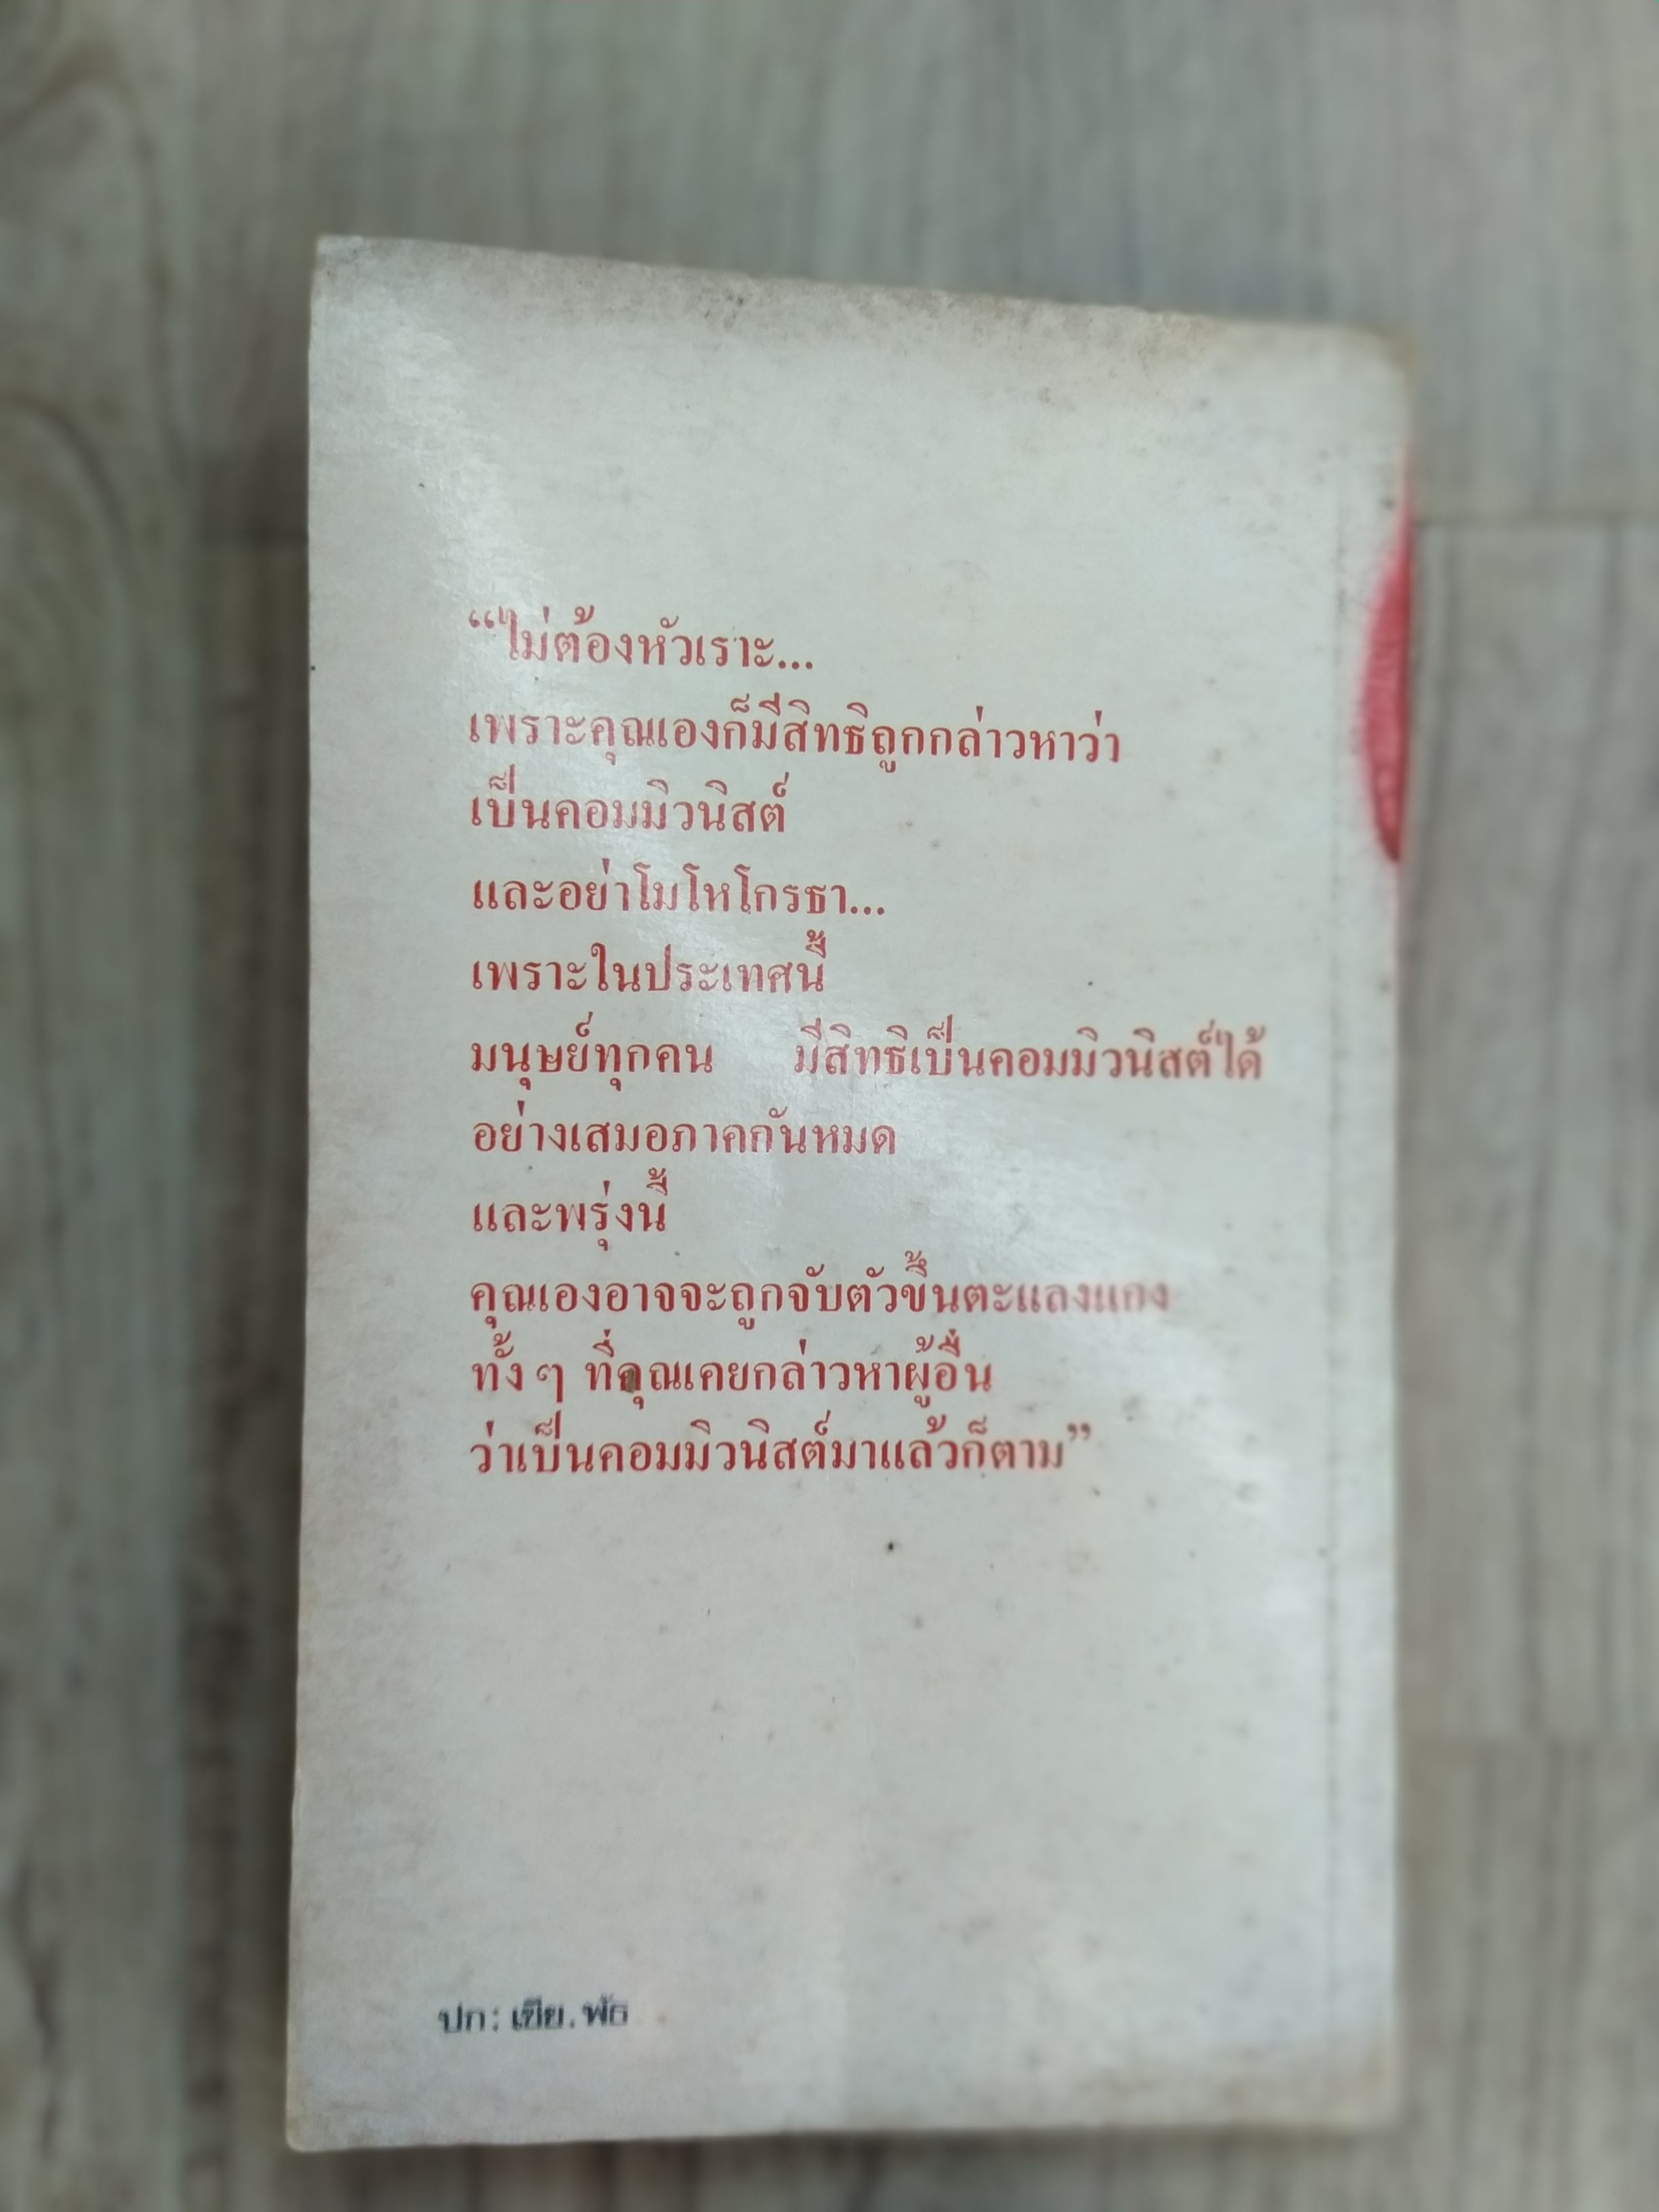 “ไม่ต้องหัวเราะ...
เพราะคุณเองก็มีสิทธิถูกกล่าวหาว่า
เป็นคอมมิวนิสต์
และอย่าโมโหโกรธา...
เพราะในประเทศนี้
มนุษย์ทุกคน มีสิทธิเป็นคอมมิวนิสต์ได้
อย่างเสมอภาคกันหมด
และพรุ่งนี้
คุณเองอาจจะถูกจับตัวขึ้นตะแลงแกง
ทั้งๆ ที่คุณเคยกล่าวหาผู้อื่น
ว่าเป็นคอมมิวนิสต์มาแล้วก็ตาม”
ปก: